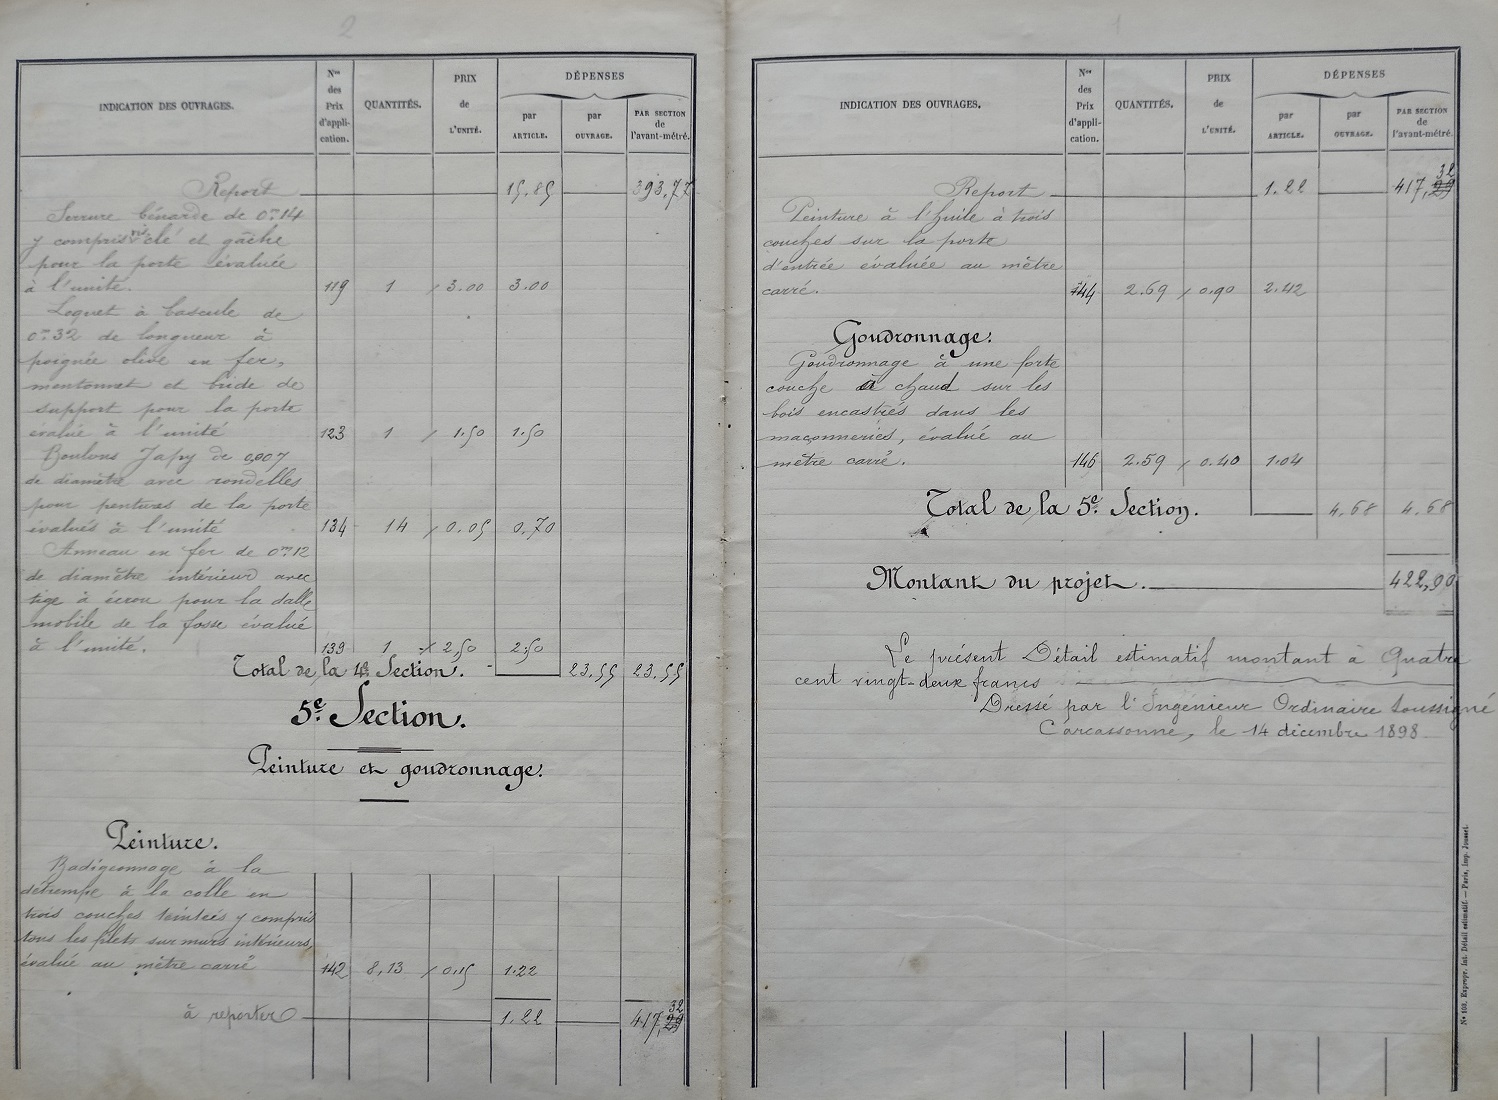 2
INDICATION DES OUVRAGES.
Nos des Prix d'appli- cation.
QUANTITÉS.
PRIX de L'UNITÉ.
DÉPENSES
par ARTICLE.
par OUVRAGE.
PAR SECTION de l'avant-métré.
Report 15.85 393,77
Serrure bénarde de 0m14
y compris vis clé et gâche
pour la porte évaluée
à l'unité. 119 1 / 3.00 3.00
Loquet à bascule de
0m32 de longueur à
poignée olive en fer,
mentonnet et bride de
support pour la porte
évalué à l'unité 123 1 / 1.50 1.50
Boulons Japy de 0,007
de diamètre avec rondelles
pour pentures de la porte
évalués à l'unité 134 14 / 0.05 0.70
Anneau en fer de 0m12
de diamètre intérieur avec
tige à écrou pour la dalle
mobile de la fosse évalué
à l'unité. 139 1 / 2,50 2.50
Total de la 4e Section. 23.55 23.55
5e Section.
Peinture et goudronnage.
Peinture.
Badigeonnage à la
détrempe à la colle en
trois couches teintées y compris
tous les filets sur murs intérieurs,
évalué au mètre carré 142 8,13 / 0.15 1.22
32
à reporter 1.22 417,29
1
INDICATION DES OUVRAGES.
Nos des Prix d'appli- cation.
QUANTITÉS.
PRIX de L'UNITÉ.
DÉPENSES
par ARTICLE.
par OUVRAGE.
PAR SECTION de l'avant-métré.
32
Report 1.22 417,29
Peinture à l'huile à trois
couches sur la porte
d'entrée évaluée au mètre
carré. 144 2.69 / 0.90 2.42
Goudronnage.
Goudronnage à une forte
couche à chaud sur les
bois encastrés dans les
maçonneries, évalué au
mètre carré. 146 2.59 / 0.40 1.04
Total de la 5e Section. 4.68 4.68
Montant du projet. 422,00
Le présent Détail estimatif montant à Quatre
cent vingt-deux francs
Dressé par l'Ingénieur Ordinaire soussigné
Carcassonne, le 14 décembre 1898.
No 103. Expropr. Int. Détail estimatif. — Paris, Imp. Jousset.